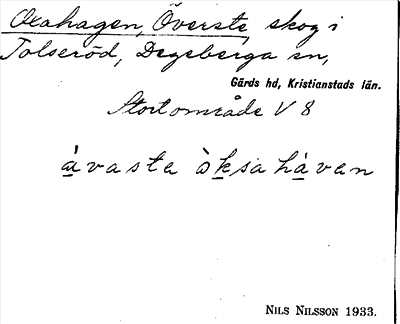 Oxahagen, Överste, skog i
Tolseröd, Degeberga sn,
Gärds hd, Kristianstads län.
Stort område V 8
àvasta òksahàvan
NILS NILSSON 1933.